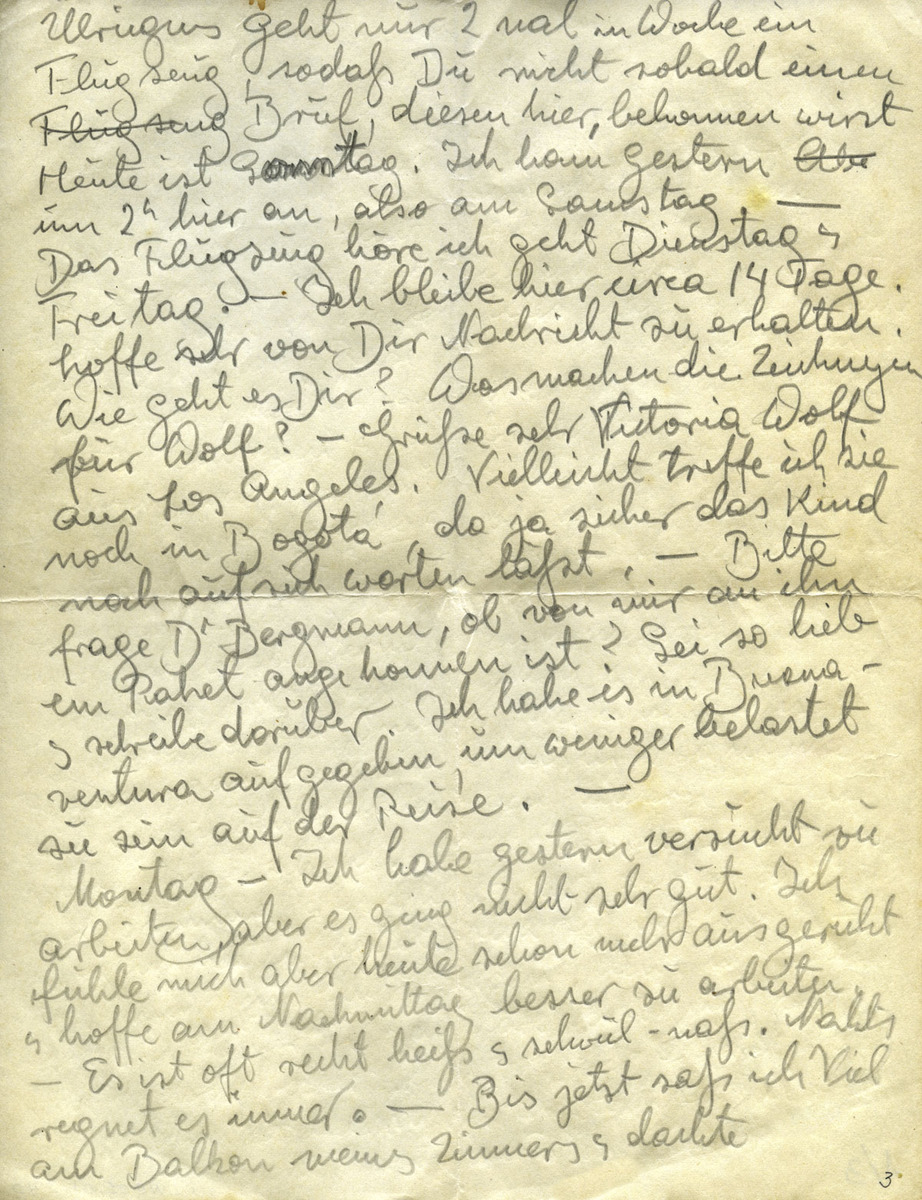 Übrigens geht nur 2 mal in Woche ein
Flugzeug, sodaß Du nicht sobald einen
Flugzeug Brief, diesen hier, bekommen wirst
Heute ist Sonntag. Ich kam gestern Abe
um 2h hier an, also am Samstag. —
Das Flugzeug höre ich geht Dienstag &
Freitag. — Ich bleibe hier circa 14 Tage.
hoffe sehr von Dir Nachricht zu erhalten.
Wie geht es Dir? Was machen die Zeichnungen
für Wolf? — Grüße sehr Victoria Wolf
aus Los Angeles. Vielleicht treffe ich sie
noch in Bogotá, da ja sicher das Kind
noch auf sich warten läßt. — Bitte
frage Dr Bergmann, ob von mir an ihn
ein Paket angekommen ist? Sei so lieb
& schreibe darüber. Ich habe es in Buena-
ventura aufgegeben, um weniger belastet
zu sein auf der Reise. —
Montag — Ich habe gestern versucht zu
arbeiten, aber es ging nicht sehr gut. Ich
fühle mich aber heute schon mehr ausgeruht
& hoffe am Nachmittag besser zu arbeiten.
— Es ist oft recht heiß & schwül-naß. Nachts
regnet es immer. — Bis jetzt saß ich viel
am Balkon meines Zimmers & dachte
3